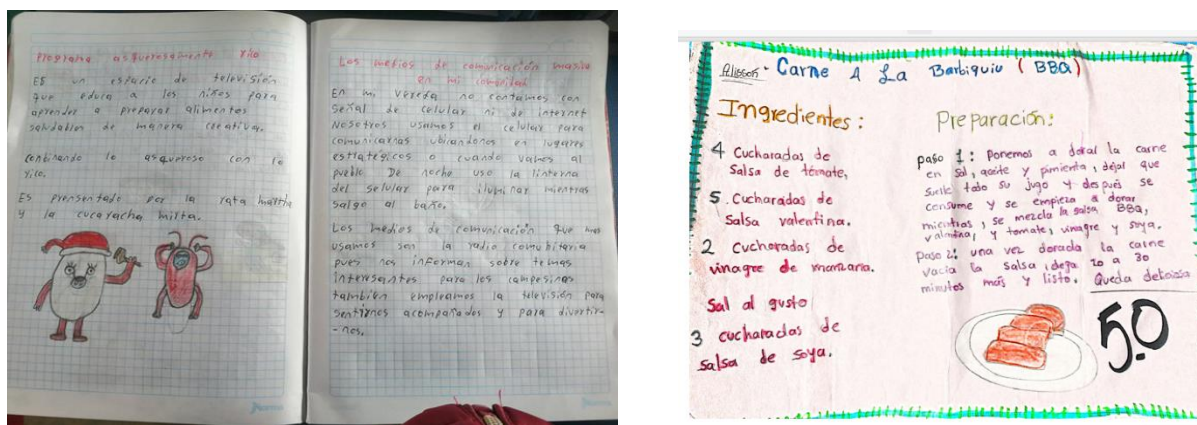 Programa asquerosamente rico
Es un espacio de televisión
que educa a los niños para
aprender a preparar alimentos
saludables de manera creativa.
Conbinando lo asqueroso con lo
rico.
Es prensentado por la rata martha
y la cucaracha mirta.
Los medios de comunicación masiva
en mi comunidad
En mi vereda no contamos con
señal de celular ni de internet
Nosotros usamos el celular para
comunicarnos ubicandonos en lugares
estratégicos o cuando vamos al
pueblo De noche uso la linterna
del selular para iluminar mientras
salgo al baño.
Los medios de comunicación que mas
usamos son la radio comunitaria
pues nos informan sobre temas
interesantes para los campesinos
también empleamos la televisión para
sentirnos acompañados y para divertir-
-nos.
Alisson - Carne A La Barbiquiu (BBQ)
Ingredientes:
4 Cucharadas de
Salsa de tomate,
5. Cucharadas de
Salsa valentina.
2 cucharadas de
vinagre de manzana.
Sal al gusto
3 cucharadas de
salsa de soya.
Preparación:
paso 1: Ponemos a doral la carne
en sal, aceite y pimienta, dejal que
suelte todo su jugo y después se
consume y se empieza a dorar
mientras, se mezcla la salsa BBQ,
valentina, y tomate, vinagre y soya.
Paso 2: una vez dorada la carne
vacia la salsa, deja 20 a 30
minutos más y listo. Queda deliciosa
5.0